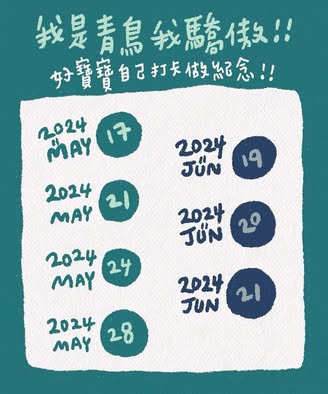 我是青鳥我驕傲!!
好寶寶自己打卡做紀念!!
2024
MAY
17
2024
MAY
21
2024
MAY
24
2024
MAY
28
2024
JUN
19
2024
JUN
20
2024
JUN
21